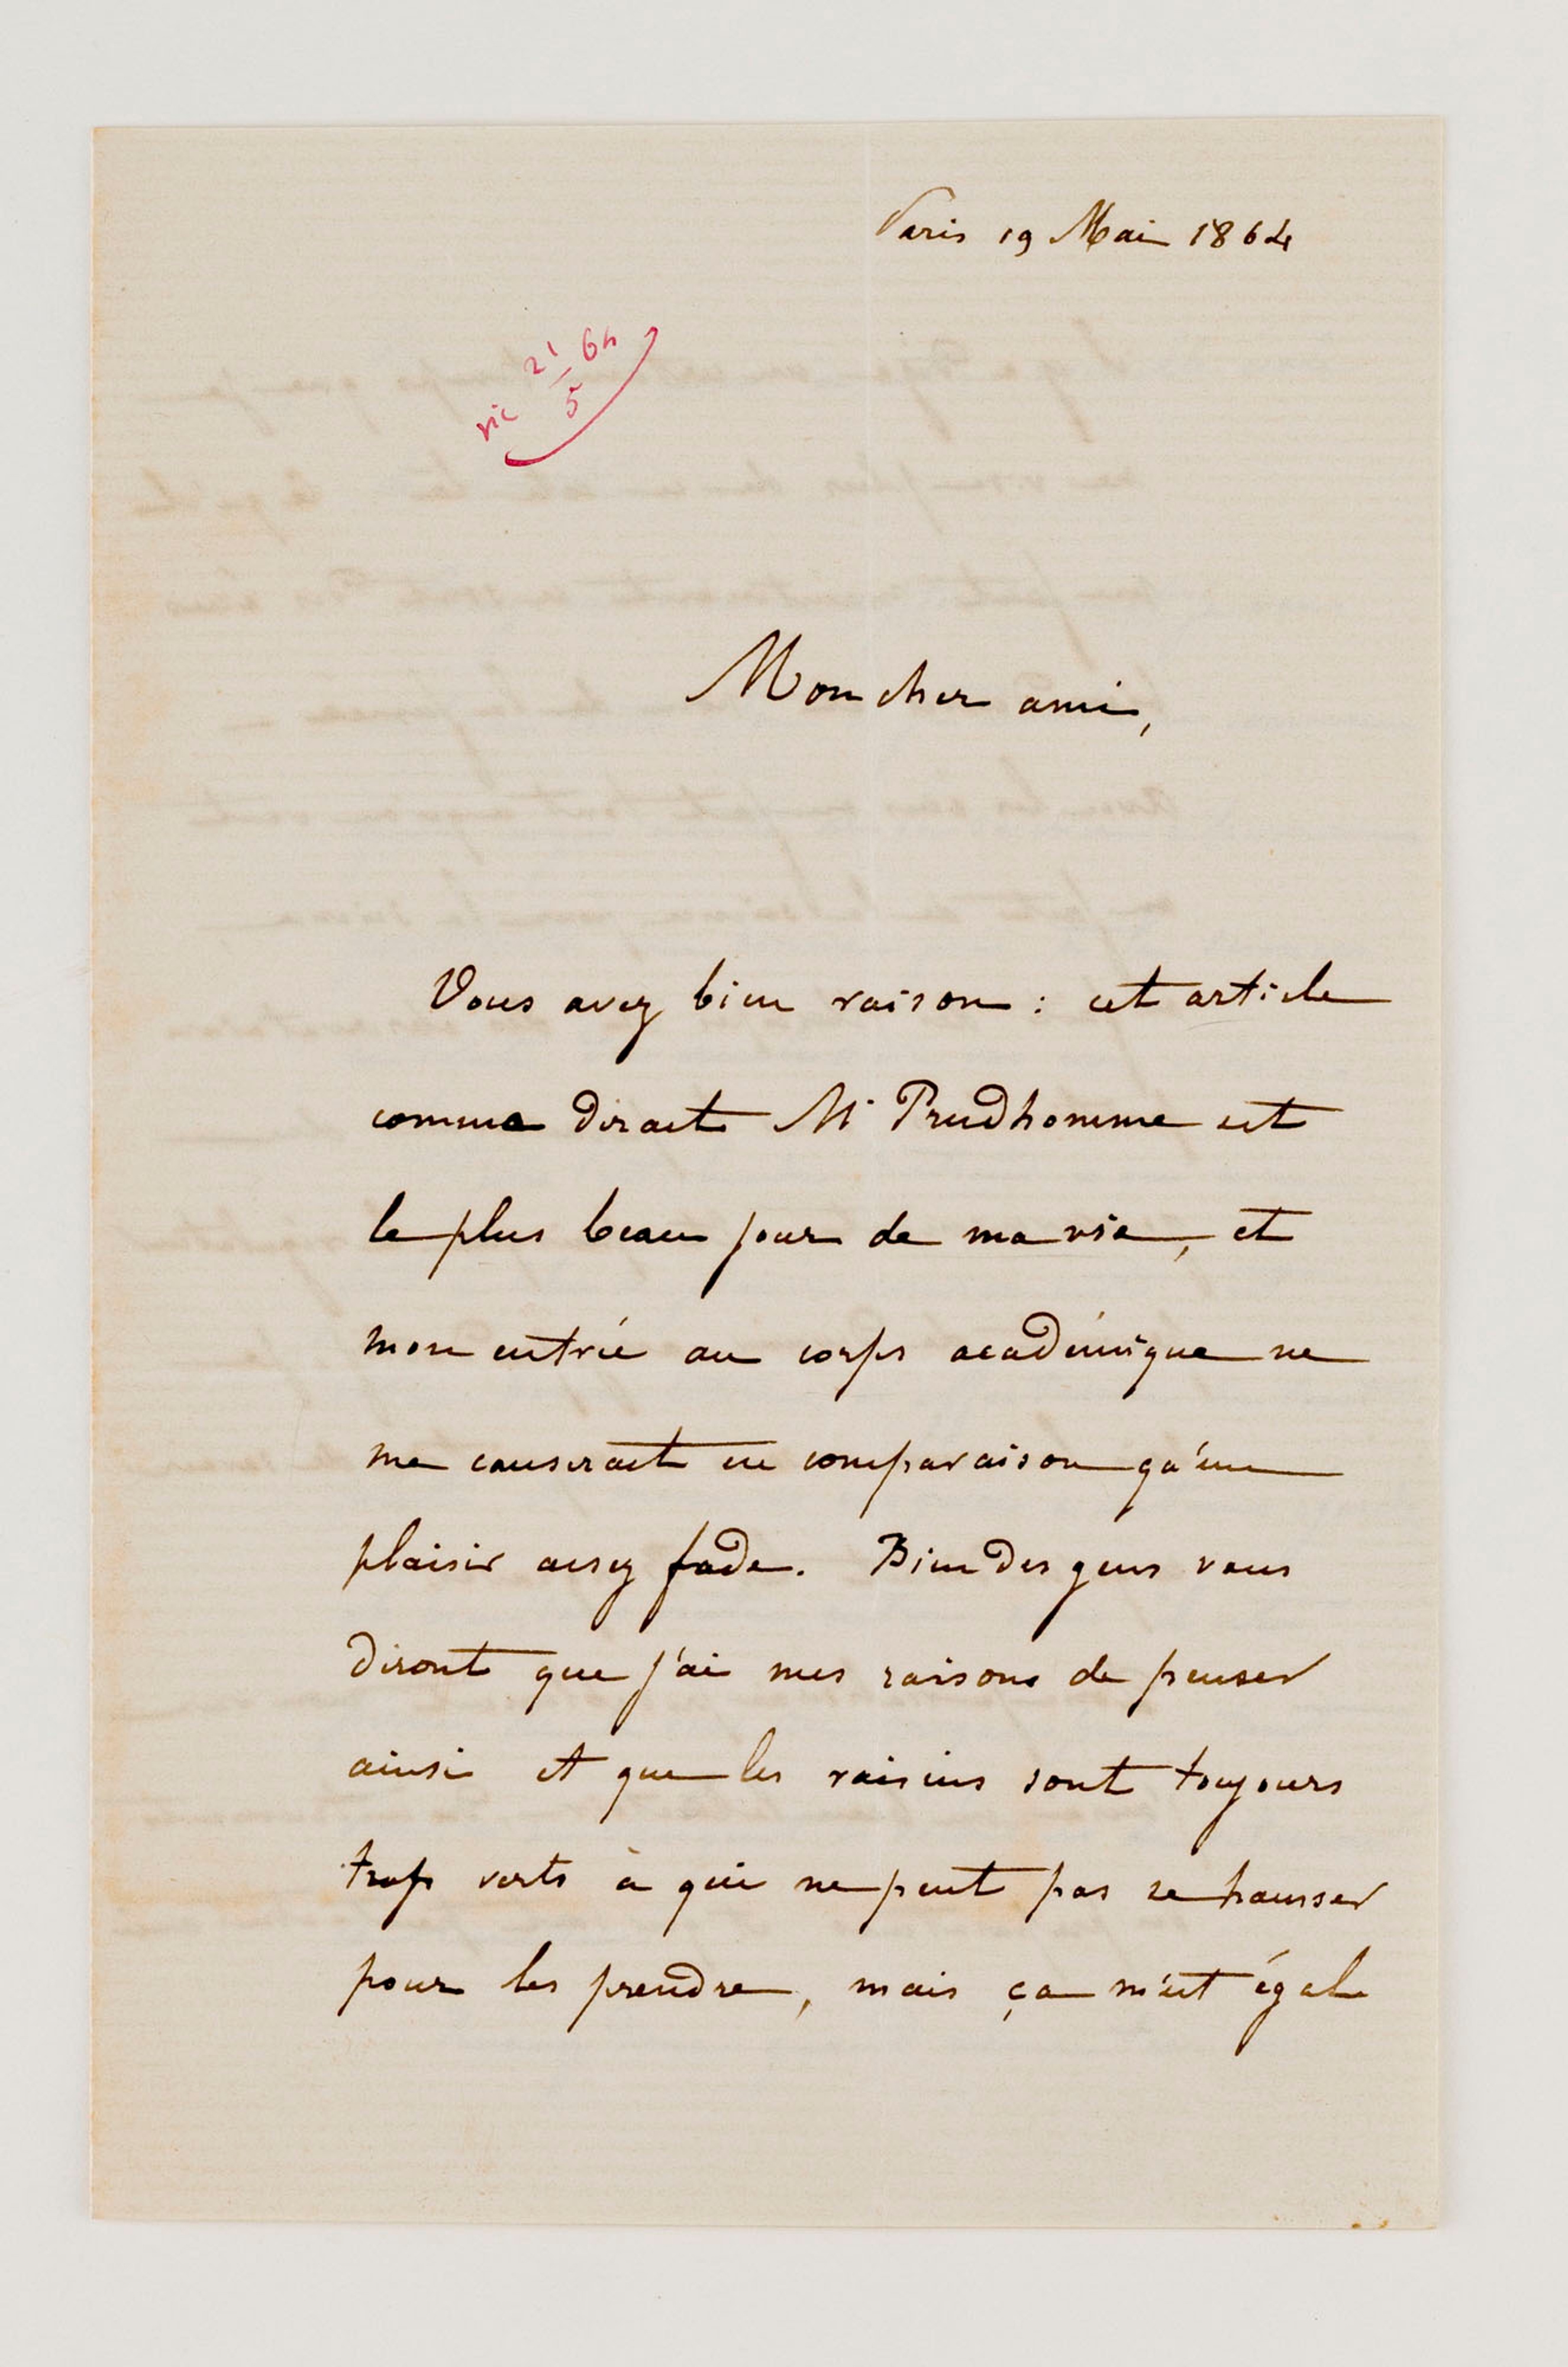 Paris 19 Mai 1864
21/5 64
Mon cher ami,
Vous avez bien raison : cet article
comme dirait Mr Prudhomme est
le plus beau jour de ma vie, et
mon entrée au corps académique ne
me causerait en comparaison qu'un
plaisir assez fade. Bien des gens vous
diront que j'ai mes raisons de penser
ainsi et que les raisins sont toujours
trop verts à qui ne peut pas se hausser
pour les prendre, mais ça m'est égal